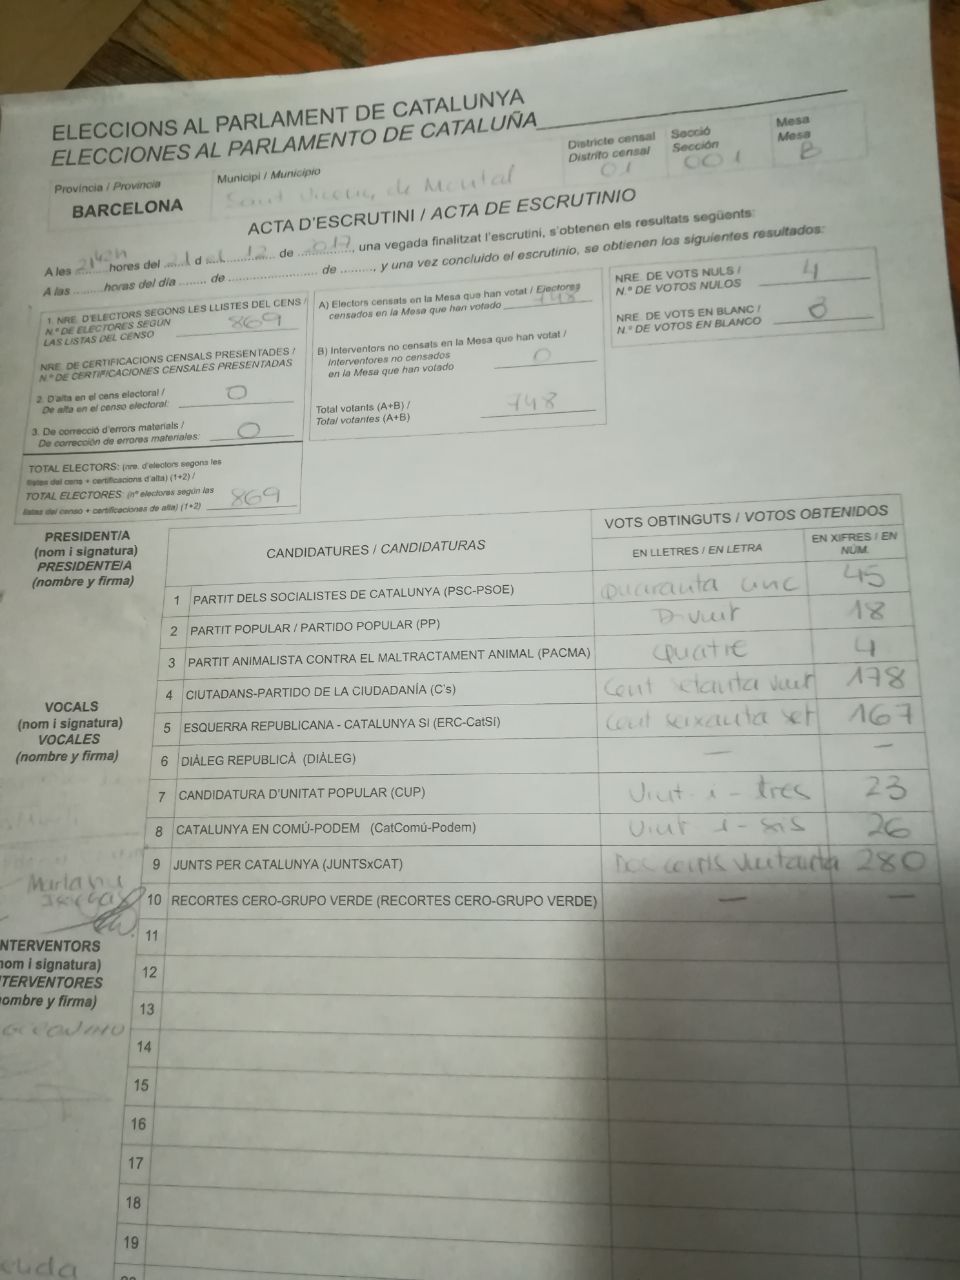 ELECCIONS AL PARLAMENT DE CATALUNYA
ELECCIONES AL PARLAMENTO DE CATALUÑA
Província / Provincia
BARCELONA
Municipi / Municipio
Sant Vicenç de Montalt
Districte censal
Distrito censal
01
Secció
Sección
001
Mesa
Mesa
B
ACTA D'ESCRUTINI / ACTA DE ESCRUTINIO
A les 21'42h hores del 21 d 12 de 2017, una vegada finalitzat l'escrutini, s'obtenen els resultats següents:
A las ........ horas del día ........ de ........................ de ........., y una vez concluido el escrutinio, se obtienen los siguientes resultados:
1. NRE. D'ELECTORS SEGONS LES LLISTES DEL CENS /
N.º DE ELECTORES SEGÚN
LAS LISTAS DEL CENSO
869
NRE. DE CERTIFICACIONS CENSALS PRESENTADES /
N.º DE CERTIFICACIONES CENSALES PRESENTADAS
2. D'alta en el cens electoral /
De alta en el censo electoral:
0
3. De correcció d'errors materials /
De corrección de errores materiales:
0
TOTAL ELECTORS: (nre. d'electors segons les
llistes del cens + certificacions d'alta) (1+2) /
TOTAL ELECTORES: (nº electores según las
listas del censo + certificaciones de alta) (1+2)
869
A) Electors censats en la Mesa que han votat / Electores
censados en la Mesa que han votado
748
B) Interventors no censats en la Mesa que han votat /
Interventores no censados
en la Mesa que han votado
0
Total votants (A+B) /
Total votantes (A+B)
748
NRE. DE VOTS NULS /
N.º DE VOTOS NULOS
4
NRE. DE VOTS EN BLANC /
N.º DE VOTOS EN BLANCO
3
PRESIDENT/A
(nom i signatura)
PRESIDENTE/A
(nombre y firma)
CANDIDATURES / CANDIDATURAS
VOTS OBTINGUTS / VOTOS OBTENIDOS
EN LLETRES / EN LETRA
EN XIFRES / EN NÚM.
1 PARTIT DELS SOCIALISTES DE CATALUNYA (PSC-PSOE) Quaranta cinc 45
2 PARTIT POPULAR / PARTIDO POPULAR (PP) Divuit 18
3 PARTIT ANIMALISTA CONTRA EL MALTRACTAMENT ANIMAL (PACMA) quatre 4
4 CIUTADANS-PARTIDO DE LA CIUDADANÍA (C's) Cent setanta vuit 178
5 ESQUERRA REPUBLICANA - CATALUNYA SI (ERC-CatSI) Cent seixanta set 167
6 DIÀLEG REPUBLICÀ (DIÀLEG) — —
7 CANDIDATURA D'UNITAT POPULAR (CUP) Vint-i-tres 23
8 CATALUNYA EN COMÚ-PODEM (CatComú-Podem) Vint i-sis 26
9 JUNTS PER CATALUNYA (JUNTSxCAT) Dos cents vuitanta 280
10 RECORTES CERO-GRUPO VERDE (RECORTES CERO-GRUPO VERDE) — —
11
12
13
14
15
16
17
18
19
VOCALS
(nom i signatura)
VOCALES
(nombre y firma)
NTERVENTORS
nom i signatura)
TERVENTORES
ombre y firma)